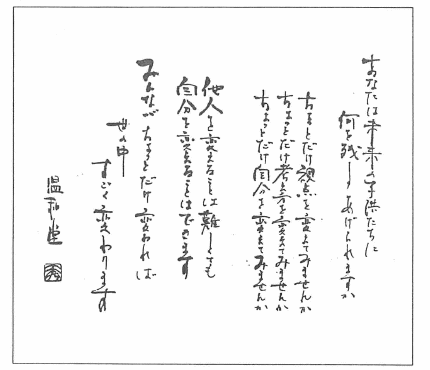 あなたは未来の子供たちに
何を残してあげられますか
ちょっとだけ視点を変えてみませんか
ちょっとだけ考え方を変えてみませんか
ちょっとだけ自分を変えてみませんか
他人を変えることは難しくても
自分を変えることはできます
みんながちょっとだけ変われば
世の中
すごく変わります